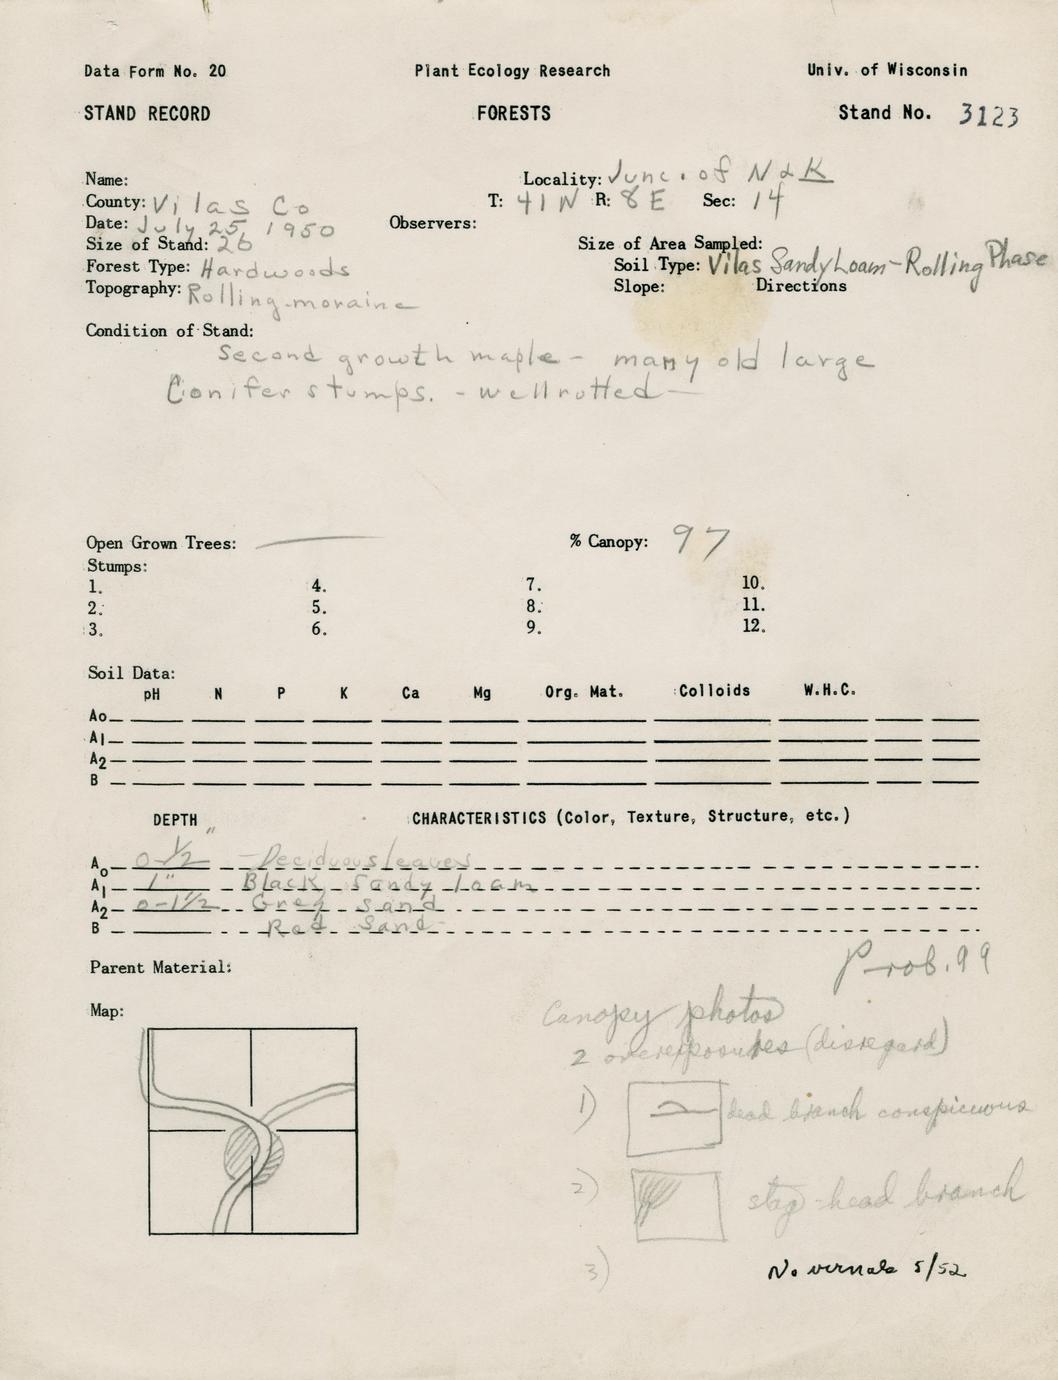 Data Form No. 20 Plant Ecology Research Univ. of Wisconsin
STAND RECORD FORESTS Stand No. 3123
Name: Locality: Junc. of N & K
County: Vilas Co T: 41N R: 8E Sec: 14
Date: July 25, 1950 Observers:
Size of Stand: 26 Size of Area Sampled:
Forest Type: Hardwoods Soil Type: Vilas Sandy Loam - Rolling Phase
Topography: Rolling moraine Slope: Directions
Condition of Stand:
Second growth maple - many old large
Conifer stumps. - well rotted -
Open Grown Trees: — % Canopy: 97
Stumps:
1. 4. 7. 10.
2. 5. 8. 11.
3. 6. 9. 12.
Soil Data:
pH N P K Ca Mg Org. Mat. Colloids W.H.C.
Ao
A1
A2
B
DEPTH CHARACTERISTICS (Color, Texture, Structure, etc.)
Ao 0-1/2" - Deciduous leaves
A1 1" Black sandy loam
A2 0-1 1/2 Grey sand
B Red Sand
Parent Material: Prob. 99
Map:
Canopy photos
2 overexposures (disregard)
1) dead branch conspicuous
2) stag-head branch
3)
No vernals 5/52